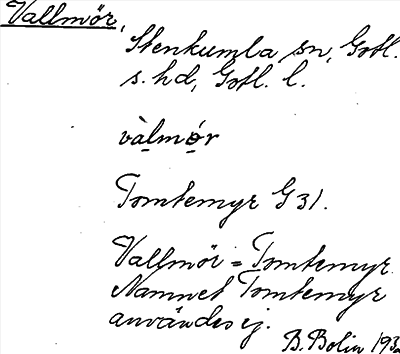 Vallmör,
Stenkumla sn, Gotl.
s. hd, Gotl. l.
vàlmór
Tomtemyr G 31.
Vallmör = Tomtemyr.
Namnet Tomtemyr
användes ej.
B. Bolin